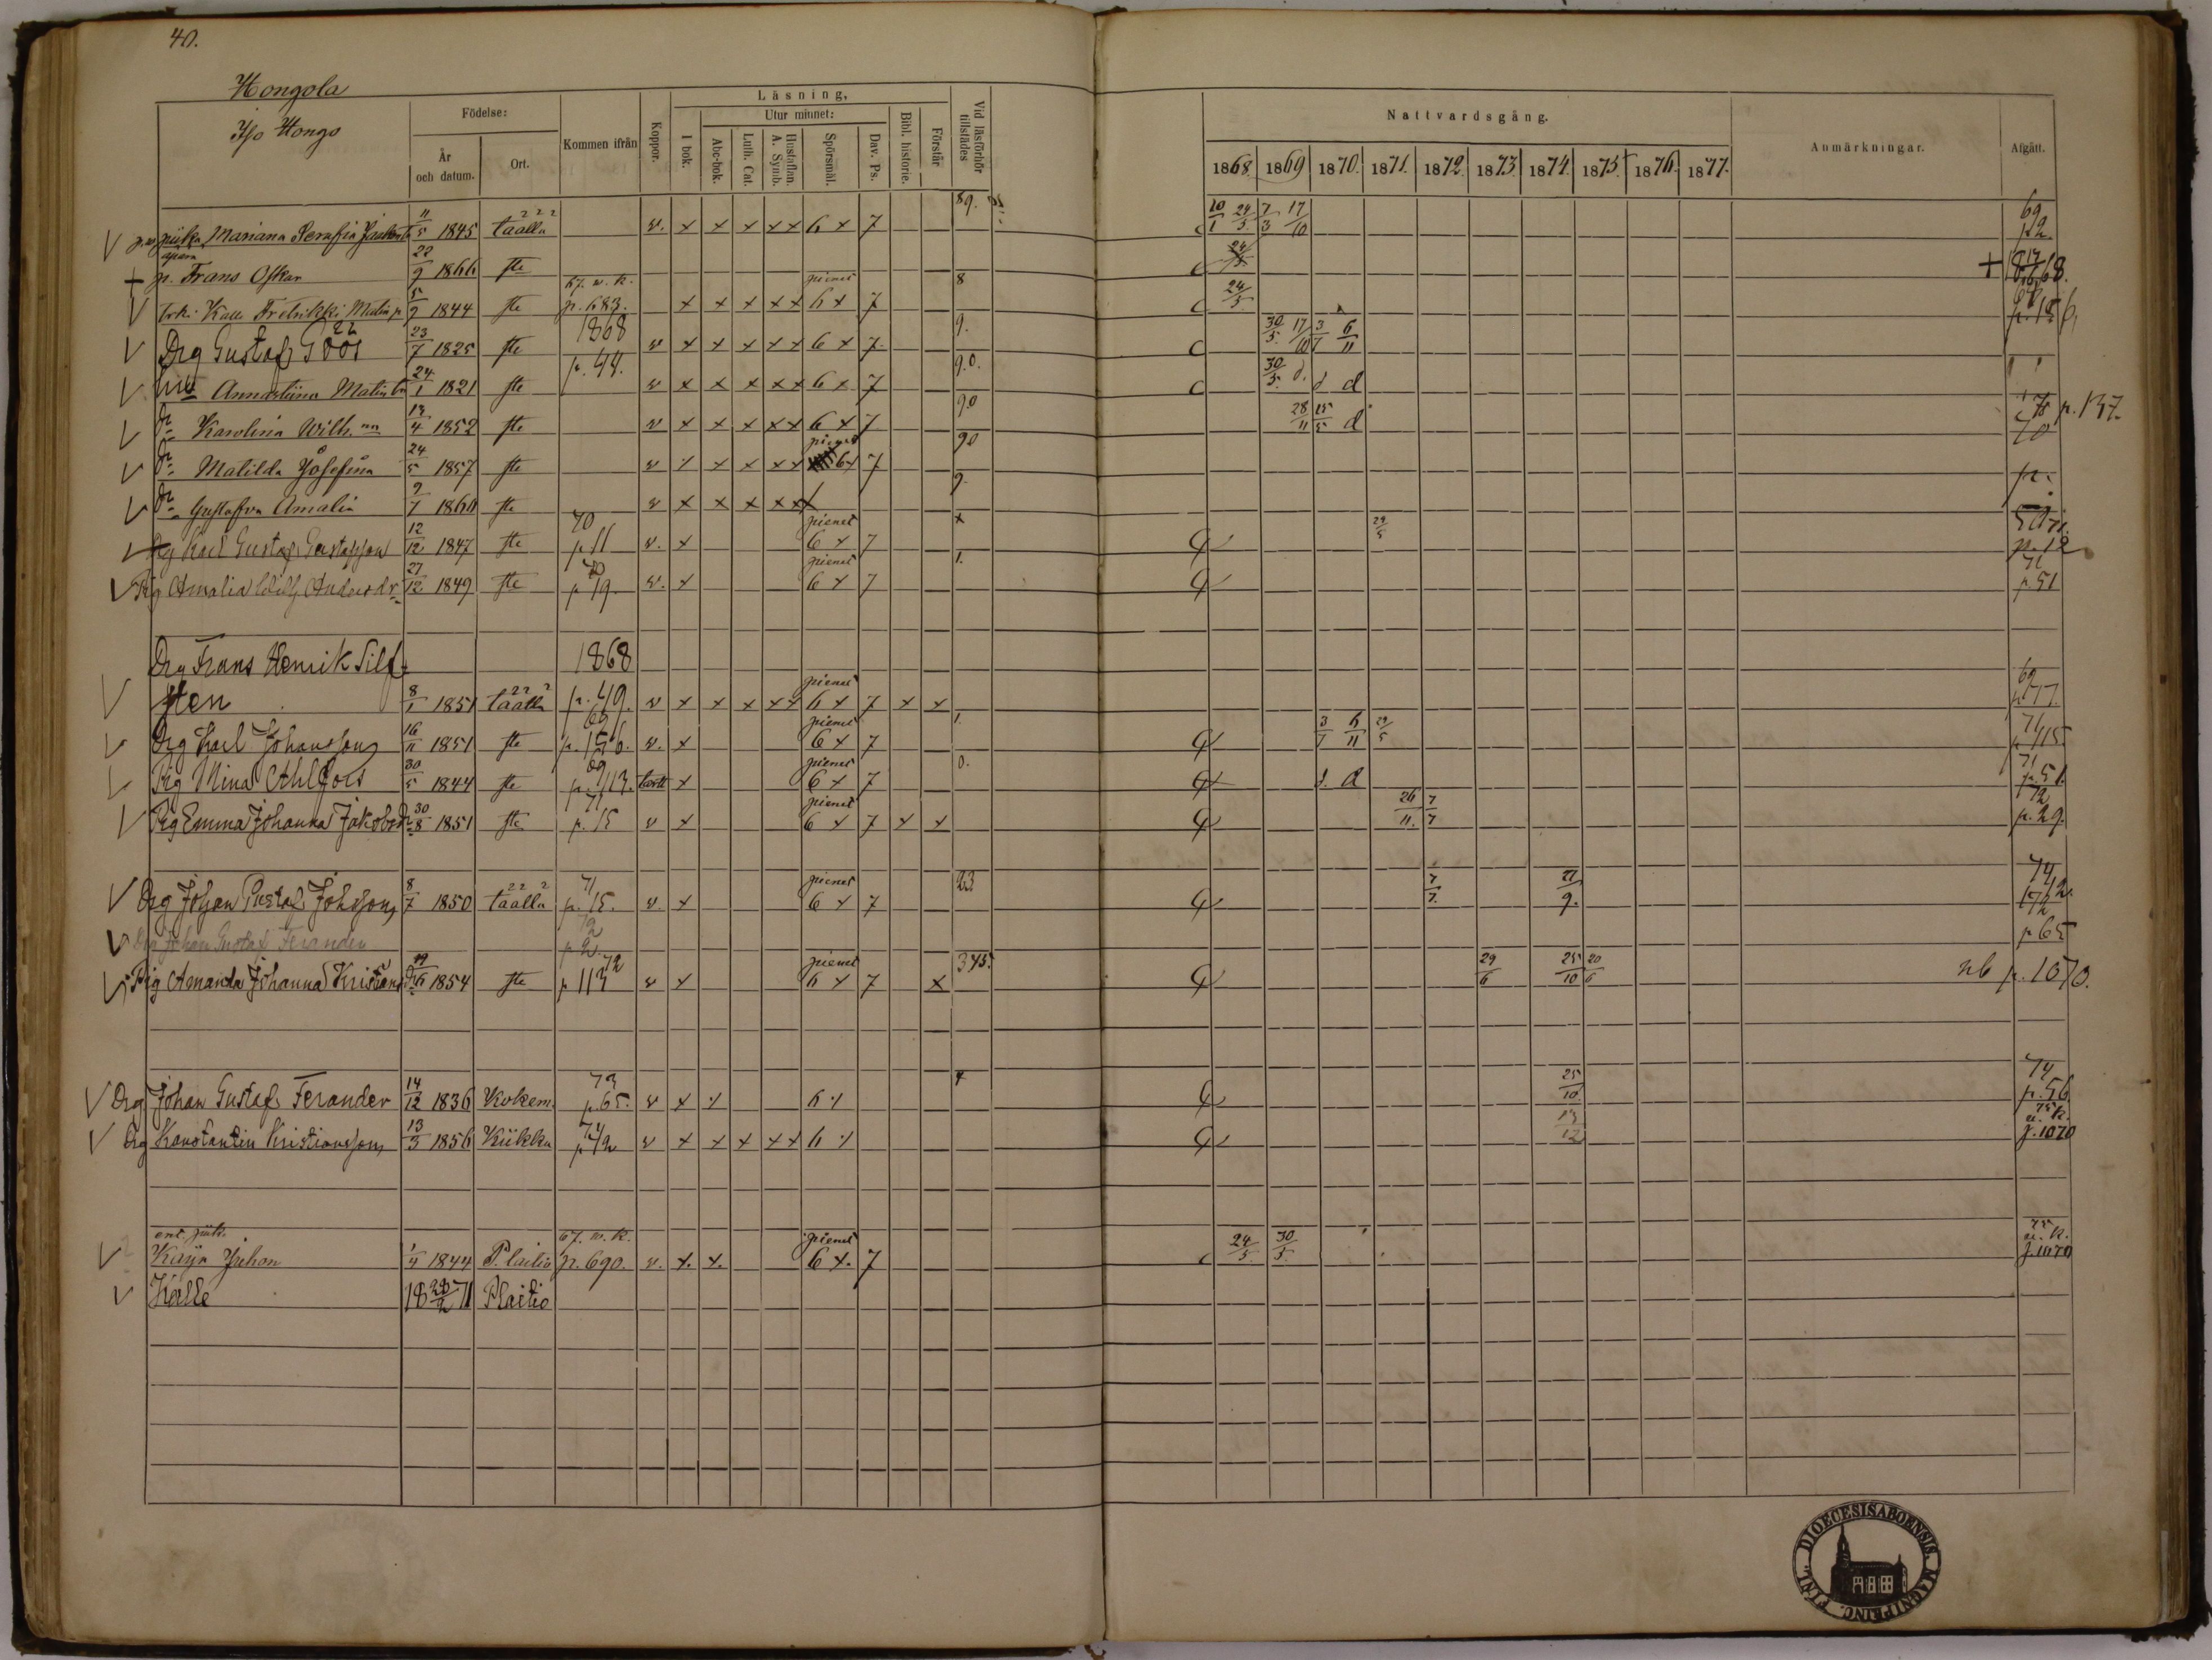 40.
Hongola
Iso Hongo
Födelse:
År och datum.
Ort.
Kommen ifrån
Koppor.
Läsning,
I bok.
Utur minnet:
Abc-bok.
Luth. Cat.
Hustaflan. A. Symb.
Spörsmål.
Dav. Ps.
Bibl. historie.
Förstår
Vid läsförhör tillstädes
Nattvardsgång.
1868. 1869 1870. 1871. 1872. 1873. 1874. 1875. 1876. 1877.
Anmärkningar.
Afgått.
piika Mariana Serafia 11/5 1845 täällä v. x x x x x 6 x 7 89. 24/5 7/3 17/10 69 p 2.
p. Frans Oskar 22/9 1866 ste 24/5 +
Kalle Fredrikki 5/9 1844 ste 67. w. k. p. 683. x x x x x pienet 6 x 7 8 24/5
Drg Gustaf Göös 23/7 1825 ste 1868 p. 44. v x x x x x 6 x 7 9. 30/5 17/10 3/7 6/11
Annastiina 24/1 1821 ste v x x x x x 6 x 7 9.0. 30/5 d. d d
Karolina Wilh. 13/4 1852 ste v x x x x x 6 x 7 90 28/11 15/5 d p. 137.
Matilda Josefina 24/5 1857 ste v x x x x pienet 6 x 7 90
Gustafva Amalia ste v x x x x x 9.
Karl Gustaf Gustafsson 12/12 1847 ste 70 p 11 v. x pienet 6 x 7 x 29/5 p. 12
Pig Amalia Wilh Andersdr 27/12 1849 ste v. x pienet 6 x 7 1. 71 p. 51
Drg Frans Henrik Silf-
sten 8/1 1851 täällä 1868 p. 49. v x x x x x pienet 6 x 7 x x 69 p. 77.
Drg Karl Johansson 16/11 1851 ste v. x pienet 6 x 7 1. 3/7 6/11 29/5 71
Pig Mina Ahlfors 30/5 1844 ste 69 p. 113. x pienet 6 x 7 0. d. d 71 p. 51
Pig Emma Johanna Jakobsdr 30/8 1851 ste 71 p. 15 v x pienet 6 x 7 x x 26/11. 7/7 72 p. 29.
Drg Johan Gustaf Johsson 8/7 1850 täällä 71 p. 15. v. x pienet 6 x 7 23 7/7. 9. 74
Drg Johan Gustaf Ferander 72 p 2. p 65
Pig Amanda Johanna Kristians dr 1854 ste 72 p 113 v x pienet 6 x 7 x 345. 29/6 25/10 20/6 p. 1070.
Drg Johan Gustaf Ferander 14/12 1836 Kokem. 73 p. 65. v x 6 4 25/10. 74 p. 56
Drg Konstantin Kristiansson 13/3 1856 Kiikka 74 v x x x x x 6 13/12 75 p. 1070
ent. piik.
Kaija Juhon 1/4 1844 P. laitio 67. w. k. p. 690. v. x. x. pienet 6 x. 7 24/5. 30/5. 75 p. 1070
Kalle 18 28/2 71 Plaitio
FINL. DIOECESIS ABOENSIS. MAGNI PRINC.